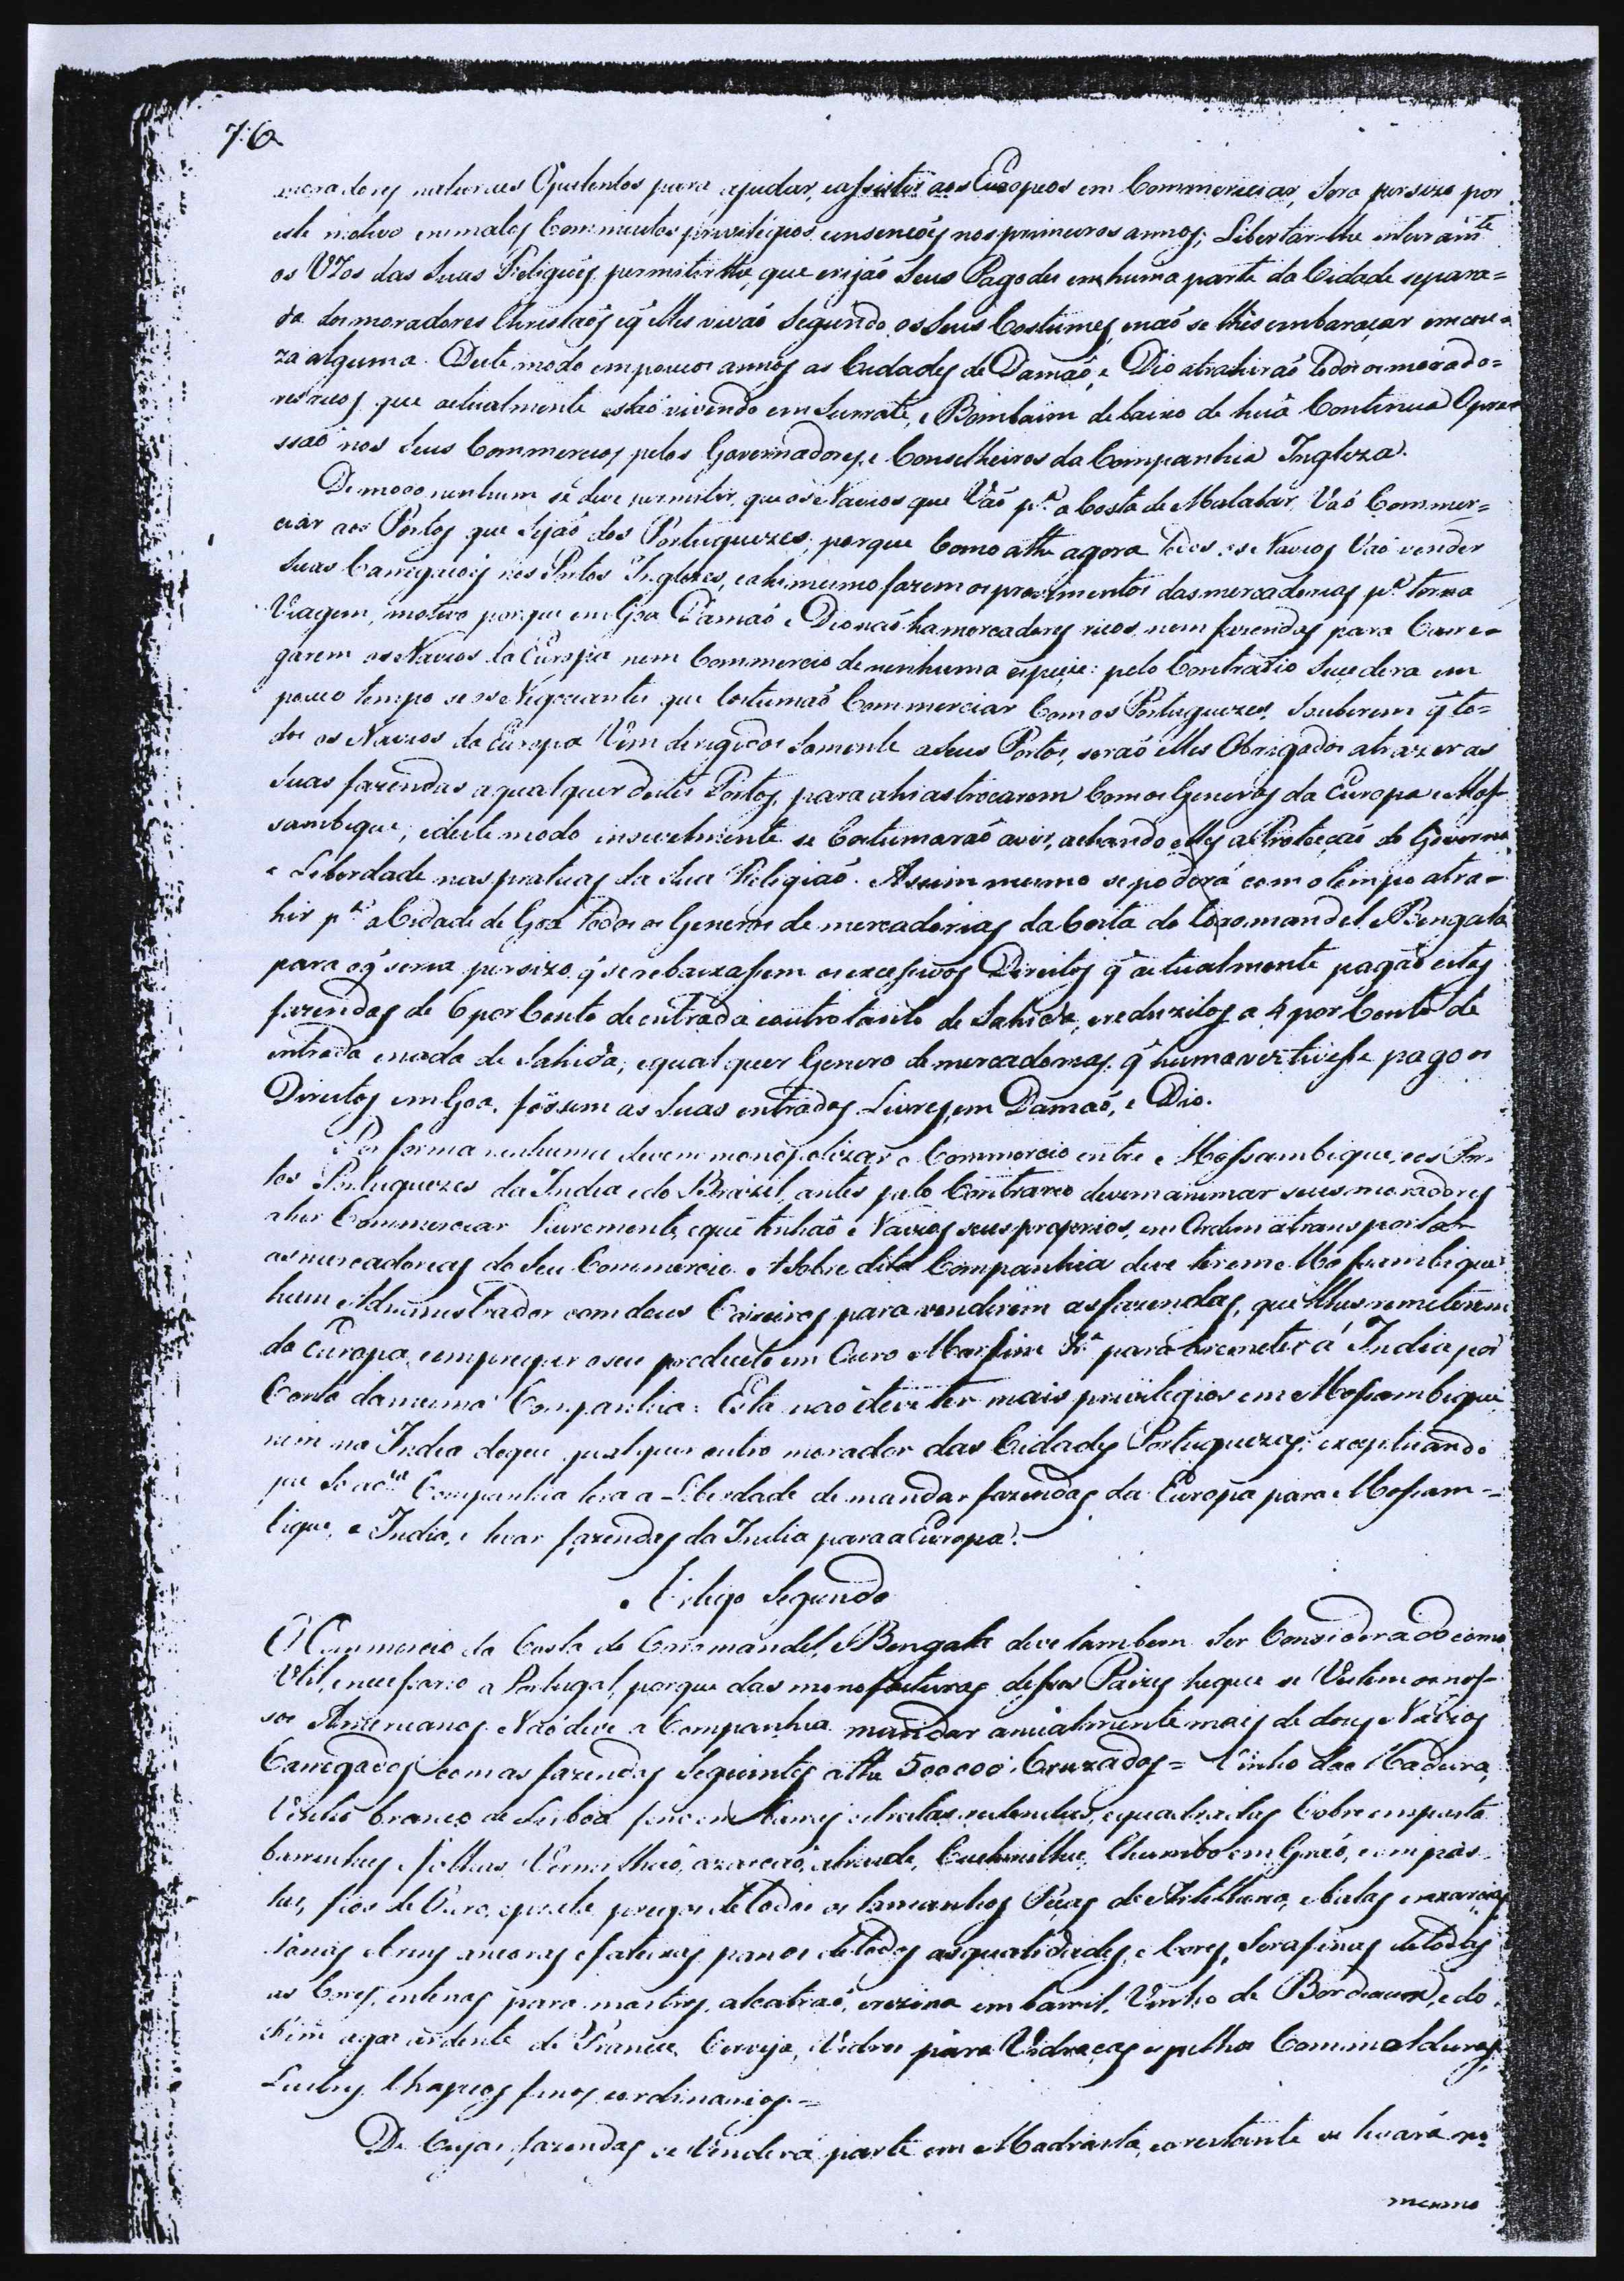 76
moradores naturaes Opulentos para ajudar, eassistir aos Europeos em Commerciar, Sera persizo por
este motivo enimalos Com muitos previlegios eensenções nos primeiros annos; Libertar lhe inteiramte
os Uzos das Suas Religiões permitir lhe, que erijaõ Seus Pagodes em huma parte da Cidade separa=
da dos moradores Christaõs eq̃ elles vivaõ Segundo os Seus Costumes, enaõ se lhes embaraçar em cou=
za alguma. Deste modo em poucos annos as Cidades de Damaõ, e Dio atrahiraõ todos os morado=
res ricos que actualmente estaõ vivendo em Surrate, e Bombaim debaixo de huã Continua Opre=
ssaõ nos Seus Commercios pelos Governadores, e Conselheiros da Companhia Ingleza.
De modo nenhum se deve permitir, que os Navios que Vaõ pa a Costa de Malabar, Vaõ Commer=
ciar aos Portos que Sejaõ dos Portuguezes, porque Como athe agora todos os Navios Vaõ vender
Suas Carregaçoẽs nos Portos Inglezes, eahi mesmo fazem os provimentos das mercadorias pa torna
Viagem, motivo porque em Goa Damaõ e Dio naõ ha mercadores ricos, nem fazendas para Carre=
garem os Navios da Europa nem Commercio de nenhuma especie: pelo Contrario Sucedera em
pouco tempo se os Negociantes que Costumaõ Commerciar Com os Portuguezes, Souberem q̃ to=
dos os Navios da Europa Vem dirigidos Somente aSeus Portos, seraõ elles Obrigados atrazer as
Suas fazendas aqualquer destes Portos, para ahi astrocarem Com os Generos da Europa e Mos=
sambique, edeste modo insensivelmente se Costumaraõ avir, achando elles a Proteçaõ do Governo
e Liberdade nas praticas da Sua Religiaõ. Assim mesmo se poderá com o tempo atra=
hir pa a Cidade de Goa todos os Generos de mercadorias da Costa de Coromandel e Bengala
para oq̃ seria persizo q̃ se rebaixassem os excessivos Direitos q̃ actualmente pagaõ estas
fazendas de 6 por Cento de entrada eoutro tanto de Sahida, ereduzilos a 4 por Cento de
entrada enada de Sahida, equalquer Genero de mercadorias q̃ huma vez tivesse pago os
Direitos em Goa, fossem as Suas entradas Livres, em Damaõ, e Dio.
Por forma nenhuma devem monopolizar o Commercio entre Mossambique, eos Por=
tos Portuguezes da India edo Brazil, antes pelo Contrario devem animar seus moradores
ahir Commerciar Livremente, eque tenhaõ Navios seus proprios, em Ordem atransportar
as mercadorias do Seu Commercio. A Sobre dita Companhia deve ter em Mossambique
hum Administrador com deus Caixeiros para venderem as fazendas, que lhes remeterem
da Europa, eempregar oseu producto em Ouro Marfim &a para oremeter á India por
Conta da mesma Companhia: Esta naõ deve ter mais privilegios em Mossambique,
nem na India doque qualquer outro morador das Cidades Portuguezas; exceptuando
que Só a da Companhia tera a Liberdade de mandar fazendas da Europa para Mossam=
bique, e India, e levar fazendas da India para a Europa.
Artigo Segundo
O Commercio da Costa de Coromandel, e Bengala deve tambem Ser Considerado como
Util, enecessario a Portugal, porque das manofacturas desses Paizes he que se Vestem os nos=
sos Americanos. Naõ deve a Companhia mandar anualmente mais de dous Navios
Carregados com as fazendas Seguintes athe 500000 Cruzados = Vinho da Madeira,
Vinho branco de Lisboa ferro em barras chatas redondas, equadradas Cobre em pasta
barrinhas folhas Vermelhaõ, azarcaõ, alvaiade, Cochenilha, Chumbo em Graõ, e em pas=
tas, fios de Ouro, eprata pregos de todos os tamanhos Peças de Artilharia, e balas enxarcias
Lonas Brins ancoras efateixas panos de todas as qualidades, e Cores, Serafinas de todas
as Cores, entenas para mastros, alcatraõ, erezina em barril, Vinho de Bordeaux, e do
Rim agoa ardente de França Cerveja, Vidros para Vidraças espelhos Com molduras
Lustres Chapeos finos eordinarios =
De Cujas fazendas se Venderá parte em Madrasta, eorestante se levará no
mesmo